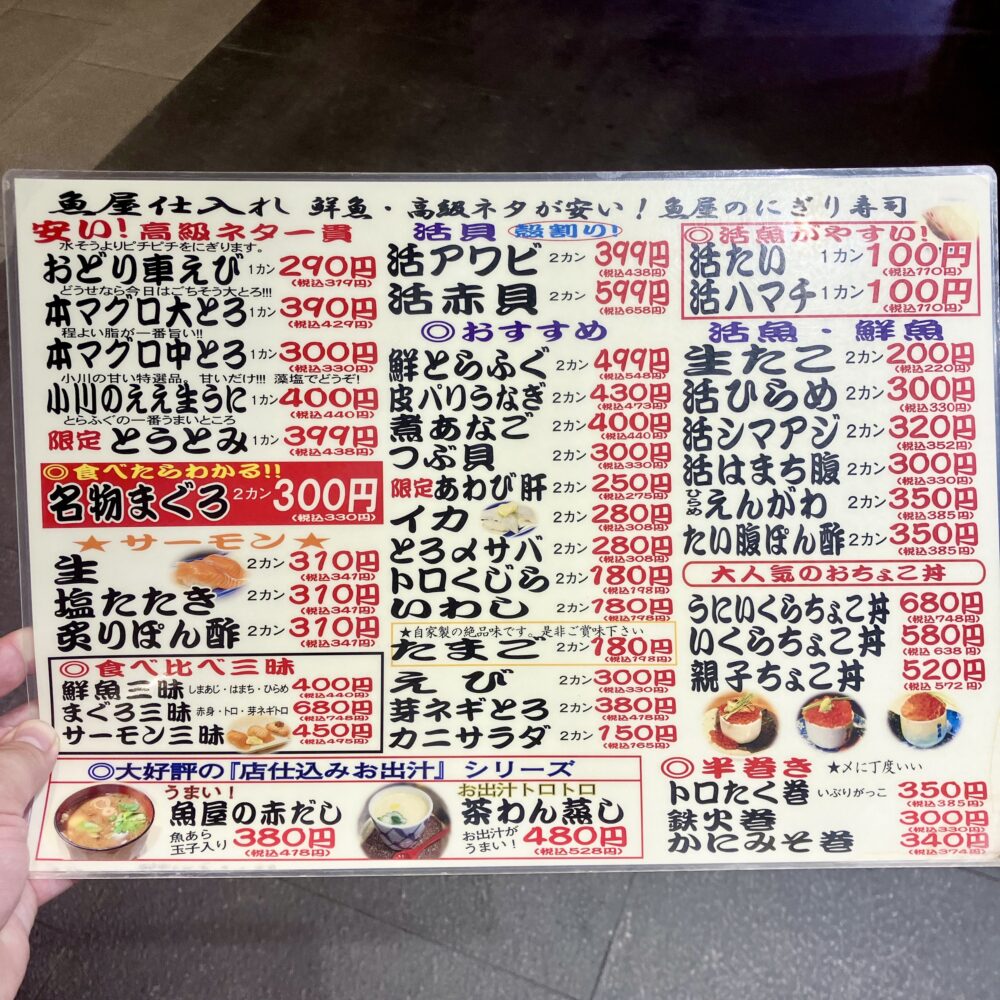 魚屋仕入れ 鮮魚・高級ネタが安い！魚屋のにぎり寿司
安い！高級ネタ一貫
水そうよりピチピチをにぎります。
おどり車えび 1カン 290円
(税込319円)
どうせなら今日はごちそう大とろ!!!
本マグロ大とろ 1カン 390円
(税込429円)
程よい脂が一番旨い!!
本マグロ中とろ 1カン 300円
(税込330円)
小川の甘い特選品。甘いだけ!!! 藻塩でどうぞ!
小川のええ生うに 1カン 400円
(税込440円)
とらふぐの一番うまいところ
限定 とうとみ 1カン 399円
(税込438円)
◎食べたらわかる!!
名物まぐろ 2カン 300円
(税込330円)
★サーモン★
生 2カン 310円
(税込341円)
塩たたき 2カン 310円
(税込341円)
炙りぽん酢 2カン 310円
(税込341円)
◎食べ比べ三昧
鮮魚三昧 しまあじ・はまち・ひらめ 400円
(税込440円)
まぐろ三昧 赤身・トロ・芽ネギトロ 680円
(税込748円)
サーモン三昧 450円
(税込495円)
活貝 殻割り!
活アワビ 2カン 399円
(税込438円)
活赤貝 2カン 599円
(税込658円)
◎おすすめ
鮮とらふぐ 2カン 499円
(税込548円)
皮パリうなぎ 2カン 430円
(税込473円)
煮あなご 2カン 400円
(税込440円)
つぶ貝 2カン 300円
(税込330円)
限定 あわび肝 2カン 250円
(税込275円)
イカ 2カン 280円
(税込308円)
とろメサバ 2カン 280円
(税込308円)
トロくじら 2カン 180円
(税込198円)
いわし 2カン 180円
(税込198円)
★自家製の絶品味です。是非ご賞味下さい
たまご 2カン 180円
(税込198円)
えび 2カン 300円
(税込330円)
芽ネギとろ 2カン 380円
(税込418円)
カニサラダ 2カン 150円
(税込165円)
◎活魚がやすい!
活たい 1カン 100円
(税込110円)
活ハマチ 1カン 100円
(税込110円)
活魚・鮮魚
生たこ 2カン 200円
(税込220円)
活ひらめ 2カン 300円
(税込330円)
活シマアジ 2カン 320円
(税込352円)
活はまち腹 2カン 300円
(税込330円)
ひらめ えんがわ 2カン 350円
(税込385円)
たい腹ぽん酢 2カン 350円
(税込385円)
大人気のおちょこ丼
うにいくらちょこ丼 680円
(税込748円)
いくらちょこ丼 580円
(税込 638円)
親子ちょこ丼 520円
(税込 572円)
◎大好評の『店仕込みお出汁』シリーズ
うまい!
魚屋の赤だし
魚あら
玉子入り 380円
(税込418円)
お出汁トロトロ
茶わん蒸し
お出汁が
うまい! 480円
(税込528円)
◎半巻き ★〆に丁度いい
トロたく巻 いぶりがっこ 350円
(税込385円)
鉄火巻 300円
(税込330円)
かにみそ巻 340円
(税込374円)